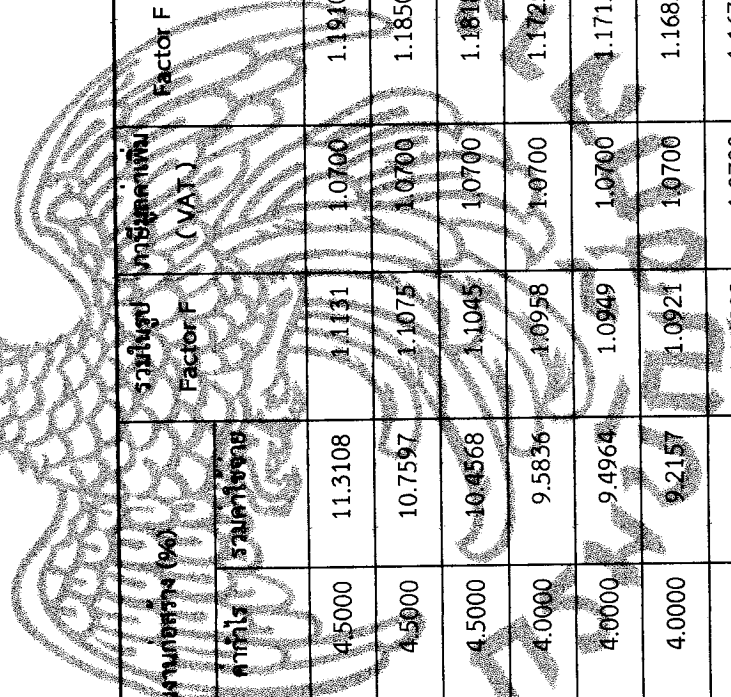 งานก่อสร้าง (%) รวมในรูป ภาษีมูลค่าเพิ่ม
Factor F ( VAT ) Factor F
ค่ากำไร รวมค่าใช้จ่าย
4.5000 11.3108 1.1131 1.0700 1.1910
4.5000 10.7597 1.1075 1.0700 1.1850
4.5000 10.4568 1.1045 1.0700 1.181
4.0000 9.5836 1.0958 1.0700 1.172
4.0000 9.4964 1.0949 1.0700 1.171
4.0000 9.2157 1.0921 1.0700 1.168